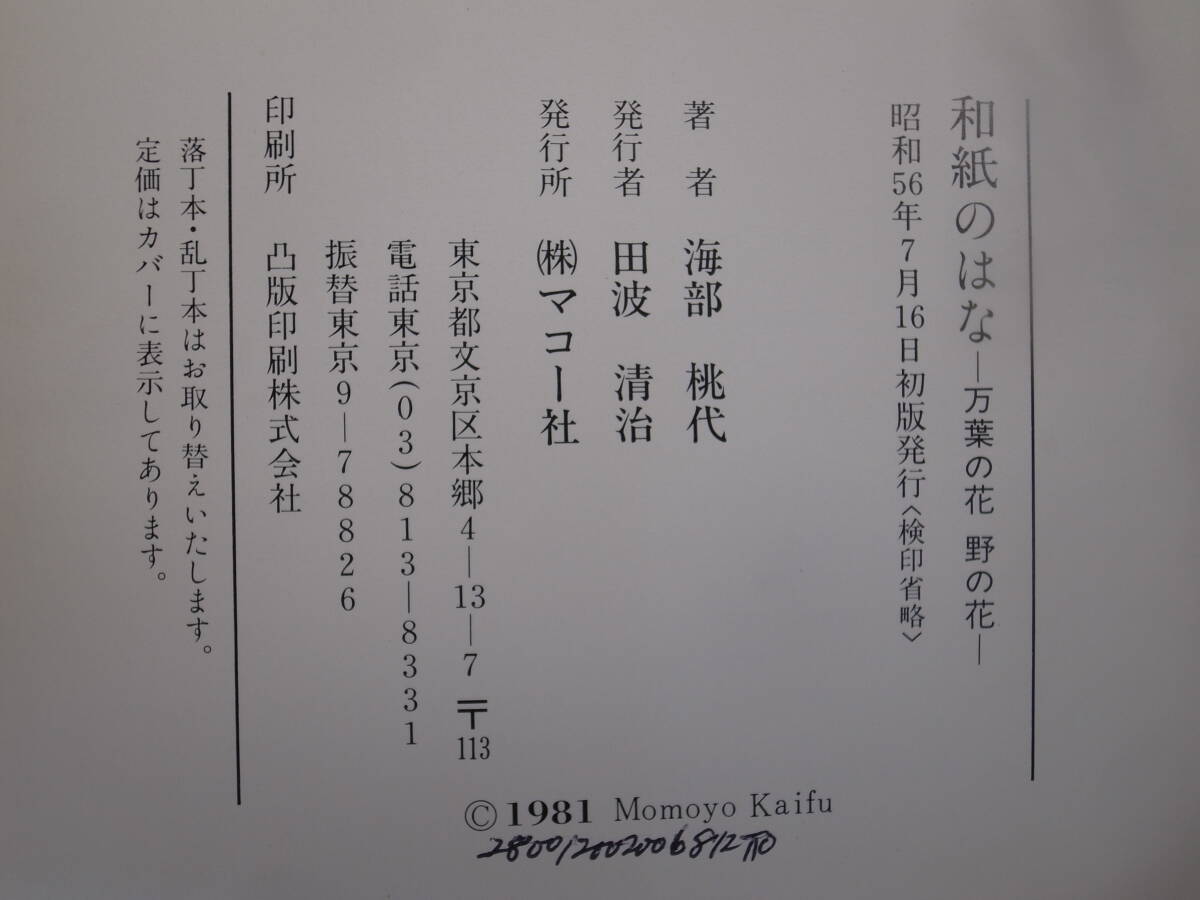 和紙のはな―万葉の花 野の花―
昭和56年7月16日初版発行〈検印省略〉
著者 海部 桃代
発行者 田波 清治
発行所 ㈱マコー社
東京都文京区本郷4―13―7 〒113
電話東京(03)813―8331
振替東京9―78826
印刷所 凸版印刷株式会社
落丁本・乱丁本はお取り替えいたします。
定価はカバーに表示してあります。
© 1981 Momoyo Kaifu